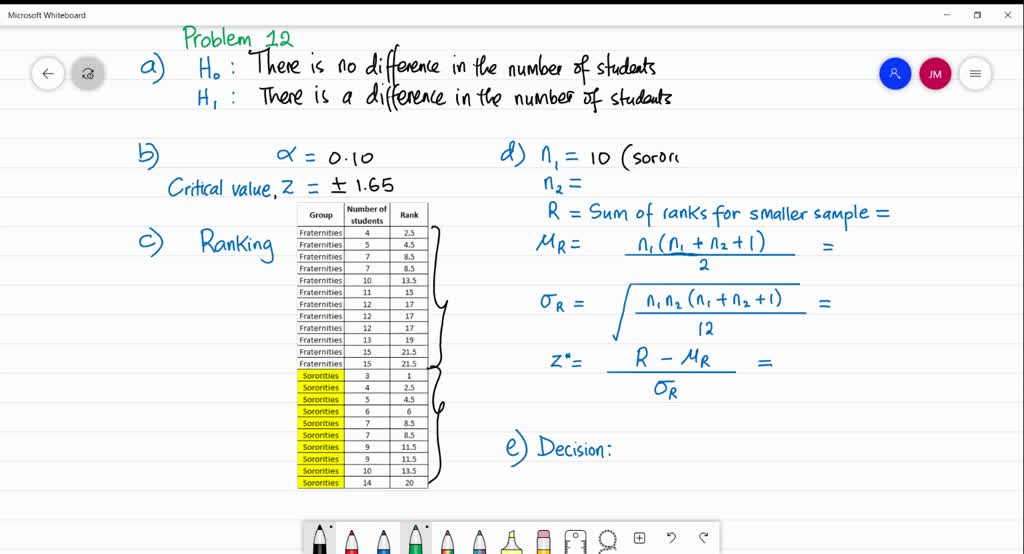 Microsoft Whiteboard
Problem 12
a) H₀ : There is no difference in the number of students
H₁ : There is a difference in the number of students
JM
b) α = 0.10
Critical value, z = ± 1.65
c) Ranking
Group Number of students Rank
Fraternities 4 2.5
Fraternities 5 4.5
Fraternities 7 8.5
Fraternities 7 8.5
Fraternities 10 13.5
Fraternities 11 15
Fraternities 12 17
Fraternities 12 17
Fraternities 12 17
Fraternities 13 19
Fraternities 15 21.5
Fraternities 15 21.5
Sororities 3 1
Sororities 4 2.5
Sororities 5 4.5
Sororities 6 6
Sororities 7 8.5
Sororities 7 8.5
Sororities 9 11.5
Sororities 9 11.5
Sororities 10 13.5
Sororities 14 20
d) n₁ = 10 (sorori
n₂ =
R = Sum of ranks for smaller sample =
μ_R = n₁(n₁ + n₂ + 1) / 2 =
σ_R = √(n₁n₂(n₁ + n₂ + 1) / 12) =
z* = (R − μ_R) / σ_R =
e) Decision: